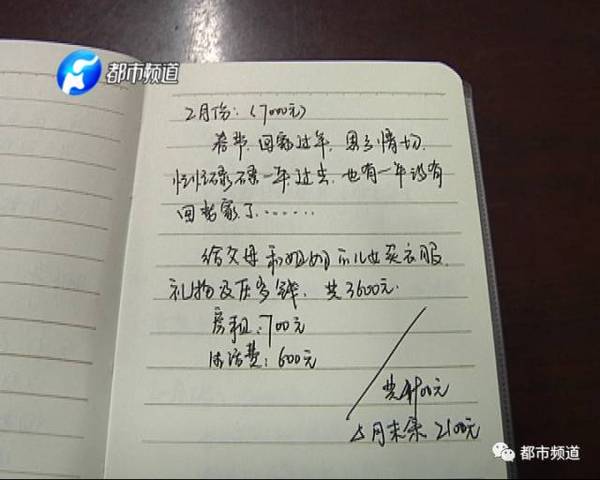 都市频道
2月份:(7000元)
春节,回家过年,思乡情切,
忙忙碌碌一年过去,也有一年没有
回老家了......
给父母和姐姐 买衣服,
礼物及压岁钱,共3600元.
房租:700元
生活费:600元
共4900元
2月末余2100元
都市频道